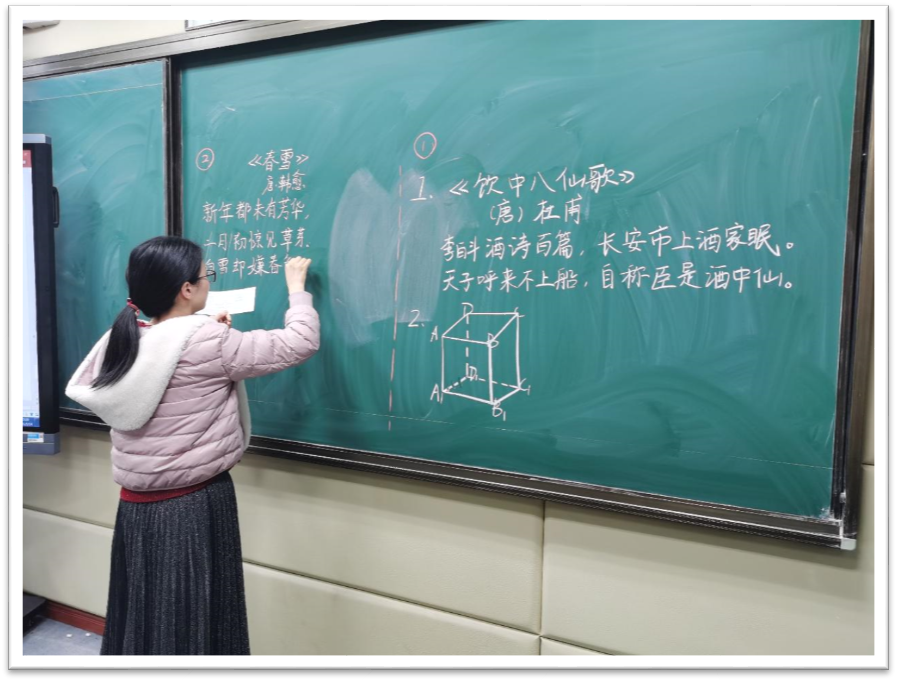 ②
《春雪》
唐·韩愈
新年都未有芳华,
二月初惊见草芽.
白雪却嫌春
①
1. 《饮中八仙歌》
(唐) 杜甫
李白斗酒诗百篇, 长安市上酒家眠。
天子呼来不上船, 自称臣是酒中仙。
2.
D
A B
D₁
A₁ C₁
B₁